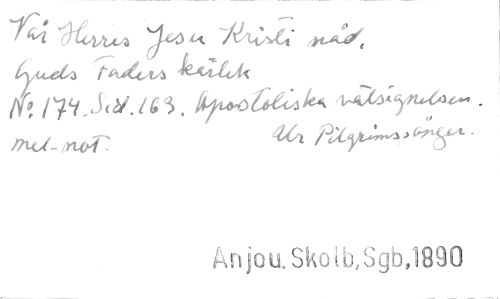 Vår Herres Jesu Kristi nåd,
Guds Faders kärlek
No. 174. Sid. 163. Apostoliska välsignelsen.
mel-not. Ur Pilgrimssånger.
Anjou. Skolb, Sgb, 1890